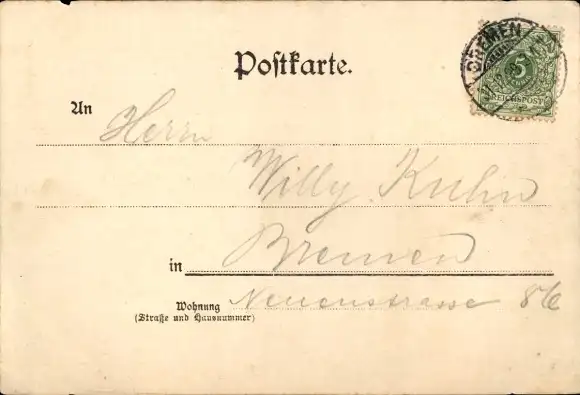 BREMEN
5
REICHSPOST
Postkarte.
An Herrn
Willy Kuhn
in Bremen
Wohnung
(Straße und Hausnummer)